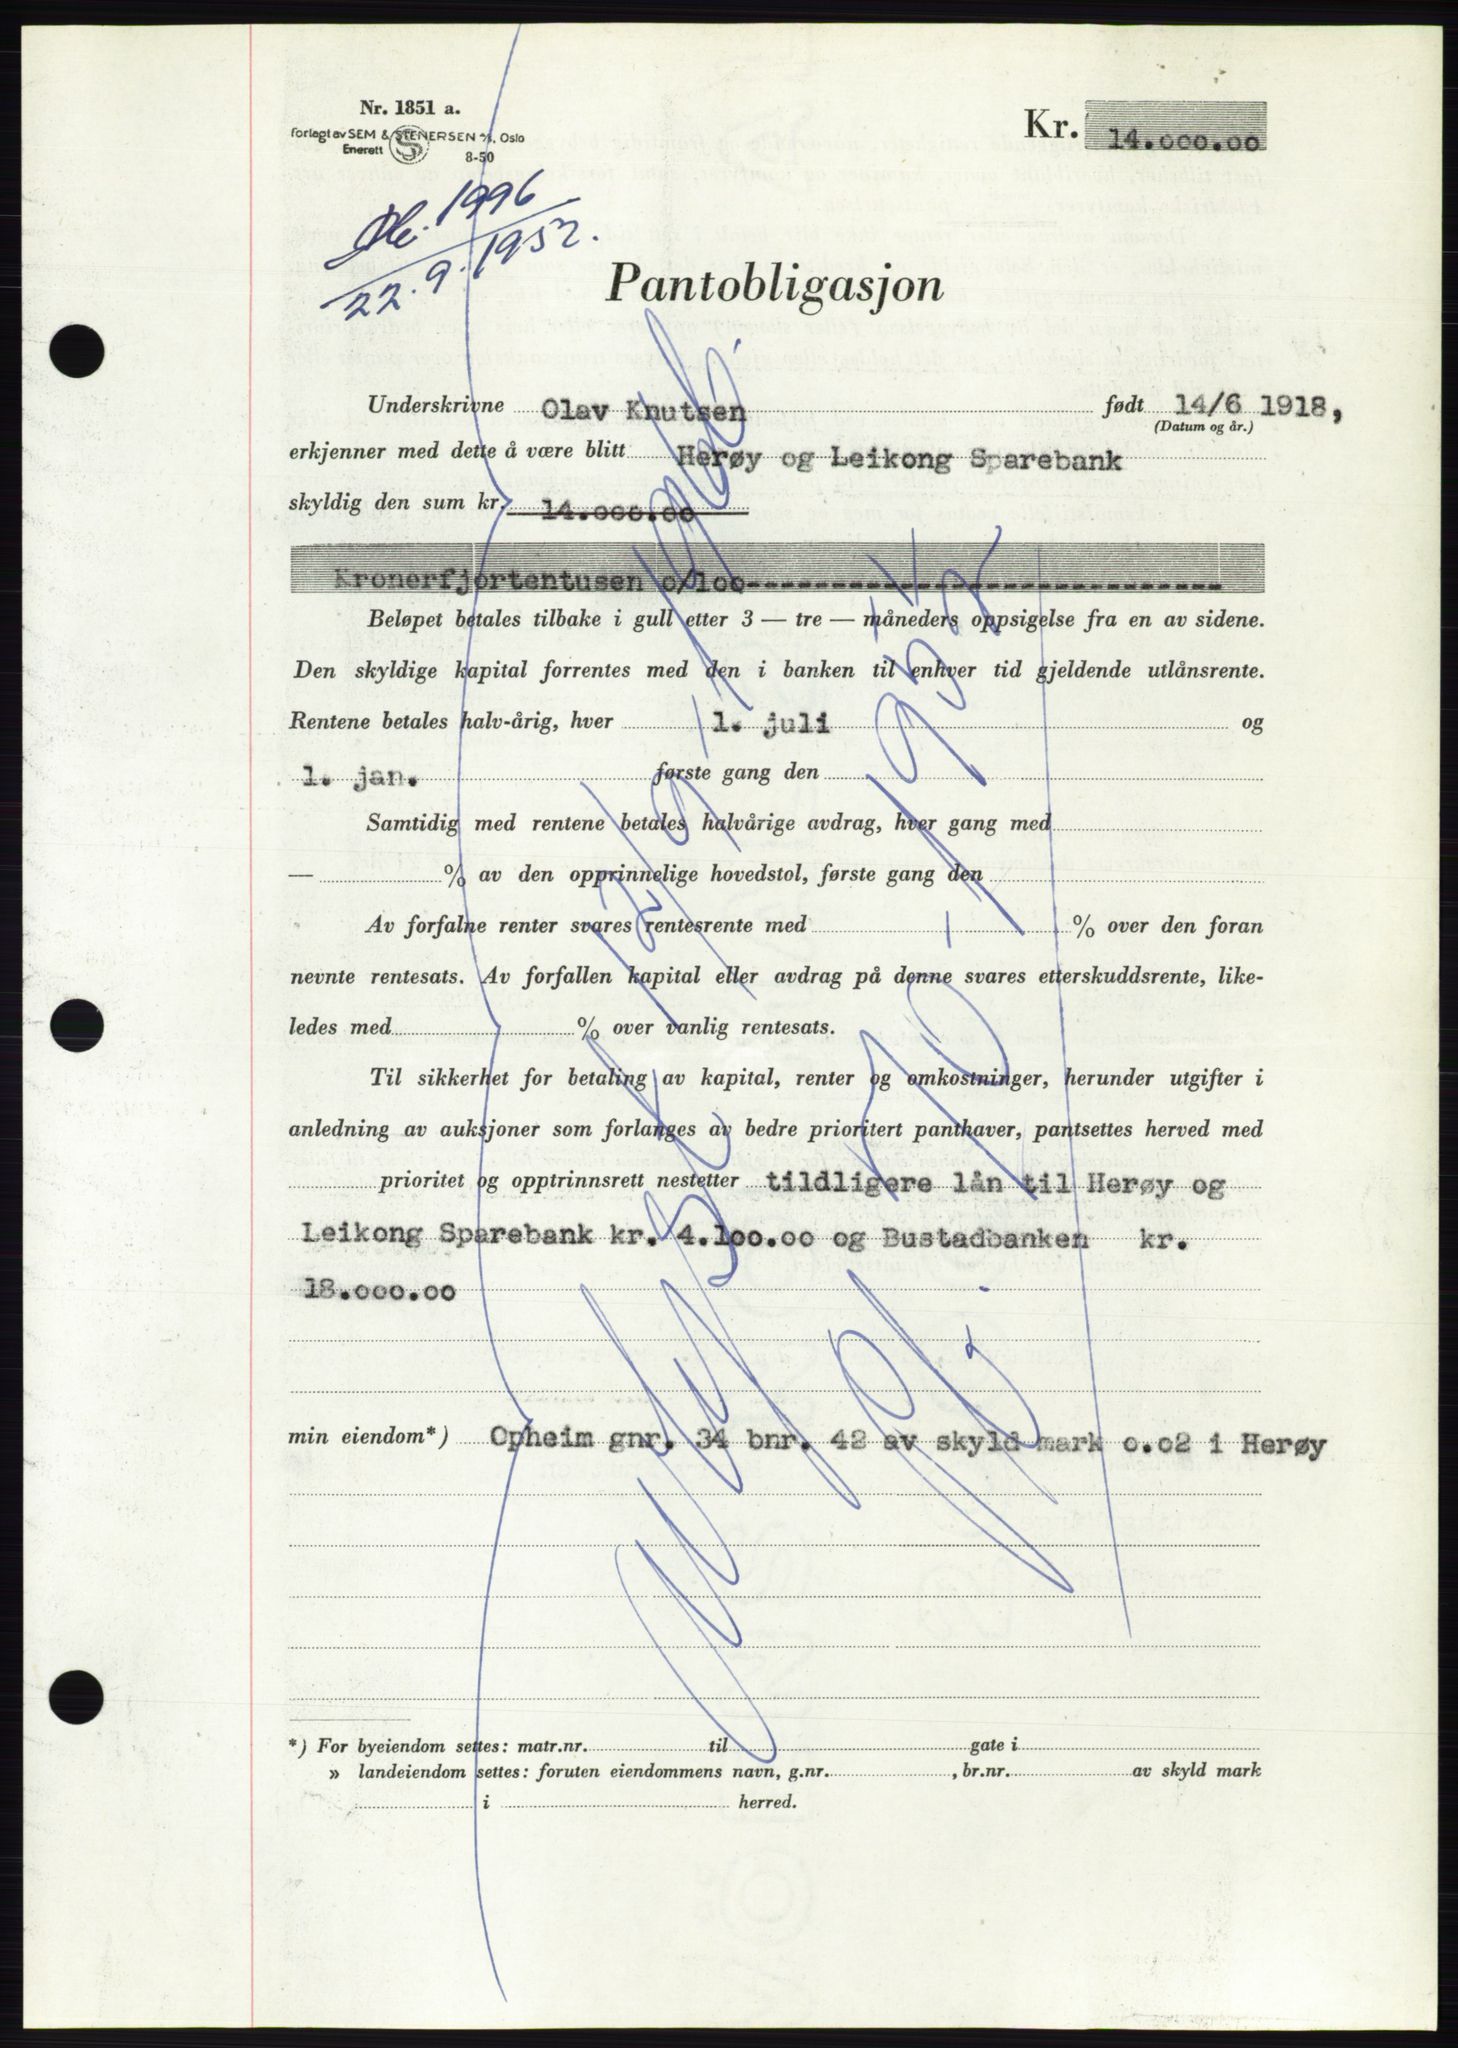 Nr. 1851 a.
Forlagt av SEM & STENERSEN A/S, Oslo
Enerett
8-50
Kr. 14.000.00
1996
22.9.1952.
Pantobligasjon
Underskrivne Olav Knutsen født 14/6 1918,
(Datum og år.)
erkjenner med dette å være blitt Herøy og Leikong Sparebank
skyldig den sum kr. 14.000.00
Kronerfjortentusen o/100
Beløpet betales tilbake i gull etter 3 — tre — måneders oppsigelse fra en av sidene.
Den skyldige kapital forrentes med den i banken til enhver tid gjeldende utlånsrente.
Rentene betales halv-årig, hver 1. juli og
1. jan. første gang den
Samtidig med rentene betales halvårige avdrag, hver gang med
— % av den opprinnelige hovedstol, første gang den
Av forfalne renter svares rentesrente med % over den foran
nevnte rentesats. Av forfallen kapital eller avdrag på denne svares etterskuddsrente, like-
ledes med % over vanlig rentesats.
Til sikkerhet for betaling av kapital, renter og omkostninger, herunder utgifter i
anledning av auksjoner som forlanges av bedre prioritert panthaver, pantsettes herved med
prioritet og opptrinnsrett nestetter tildligere lån til Herøy og
Leikong Sparebank kr. 4.100.00 og Bustadbanken kr.
18.000.00
min eiendom*) Opheim gnr. 34 bnr. 42 av skyld mark 0.02 i Herøy
*) For byeiendom settes: matr.nr. til gate i
» landeiendom settes: foruten eiendommens navn, g.nr. , br.nr. av skyld mark
i herred.